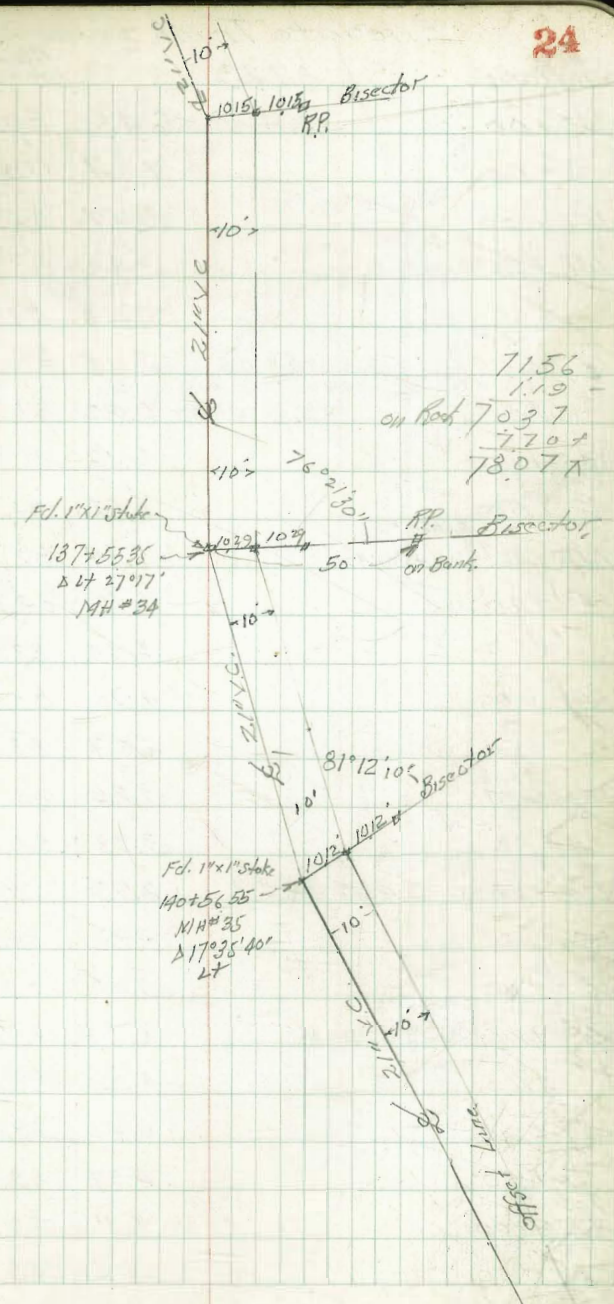 24
21" V.C.
10'
1015 1015 Bisector
R.P.
10'
21" V.C.
7156
1.19 -
on Rock 7037
7.70 +
78.07 π
10'
76°21'30"
Fd. 1"x1" stake
1029 1029
R.P.
Bisector
137+5535
Δ Lt 27°17'
MH #34
50
on Bank.
10'
21" V.C.
81°12'10"
Bisector
10'
1012' 1012'
Fd. 1"x1" stake
140+5655
MH #35
Δ 17°35'40"
Lt
10'
21" V.C.
10'
Offset Line